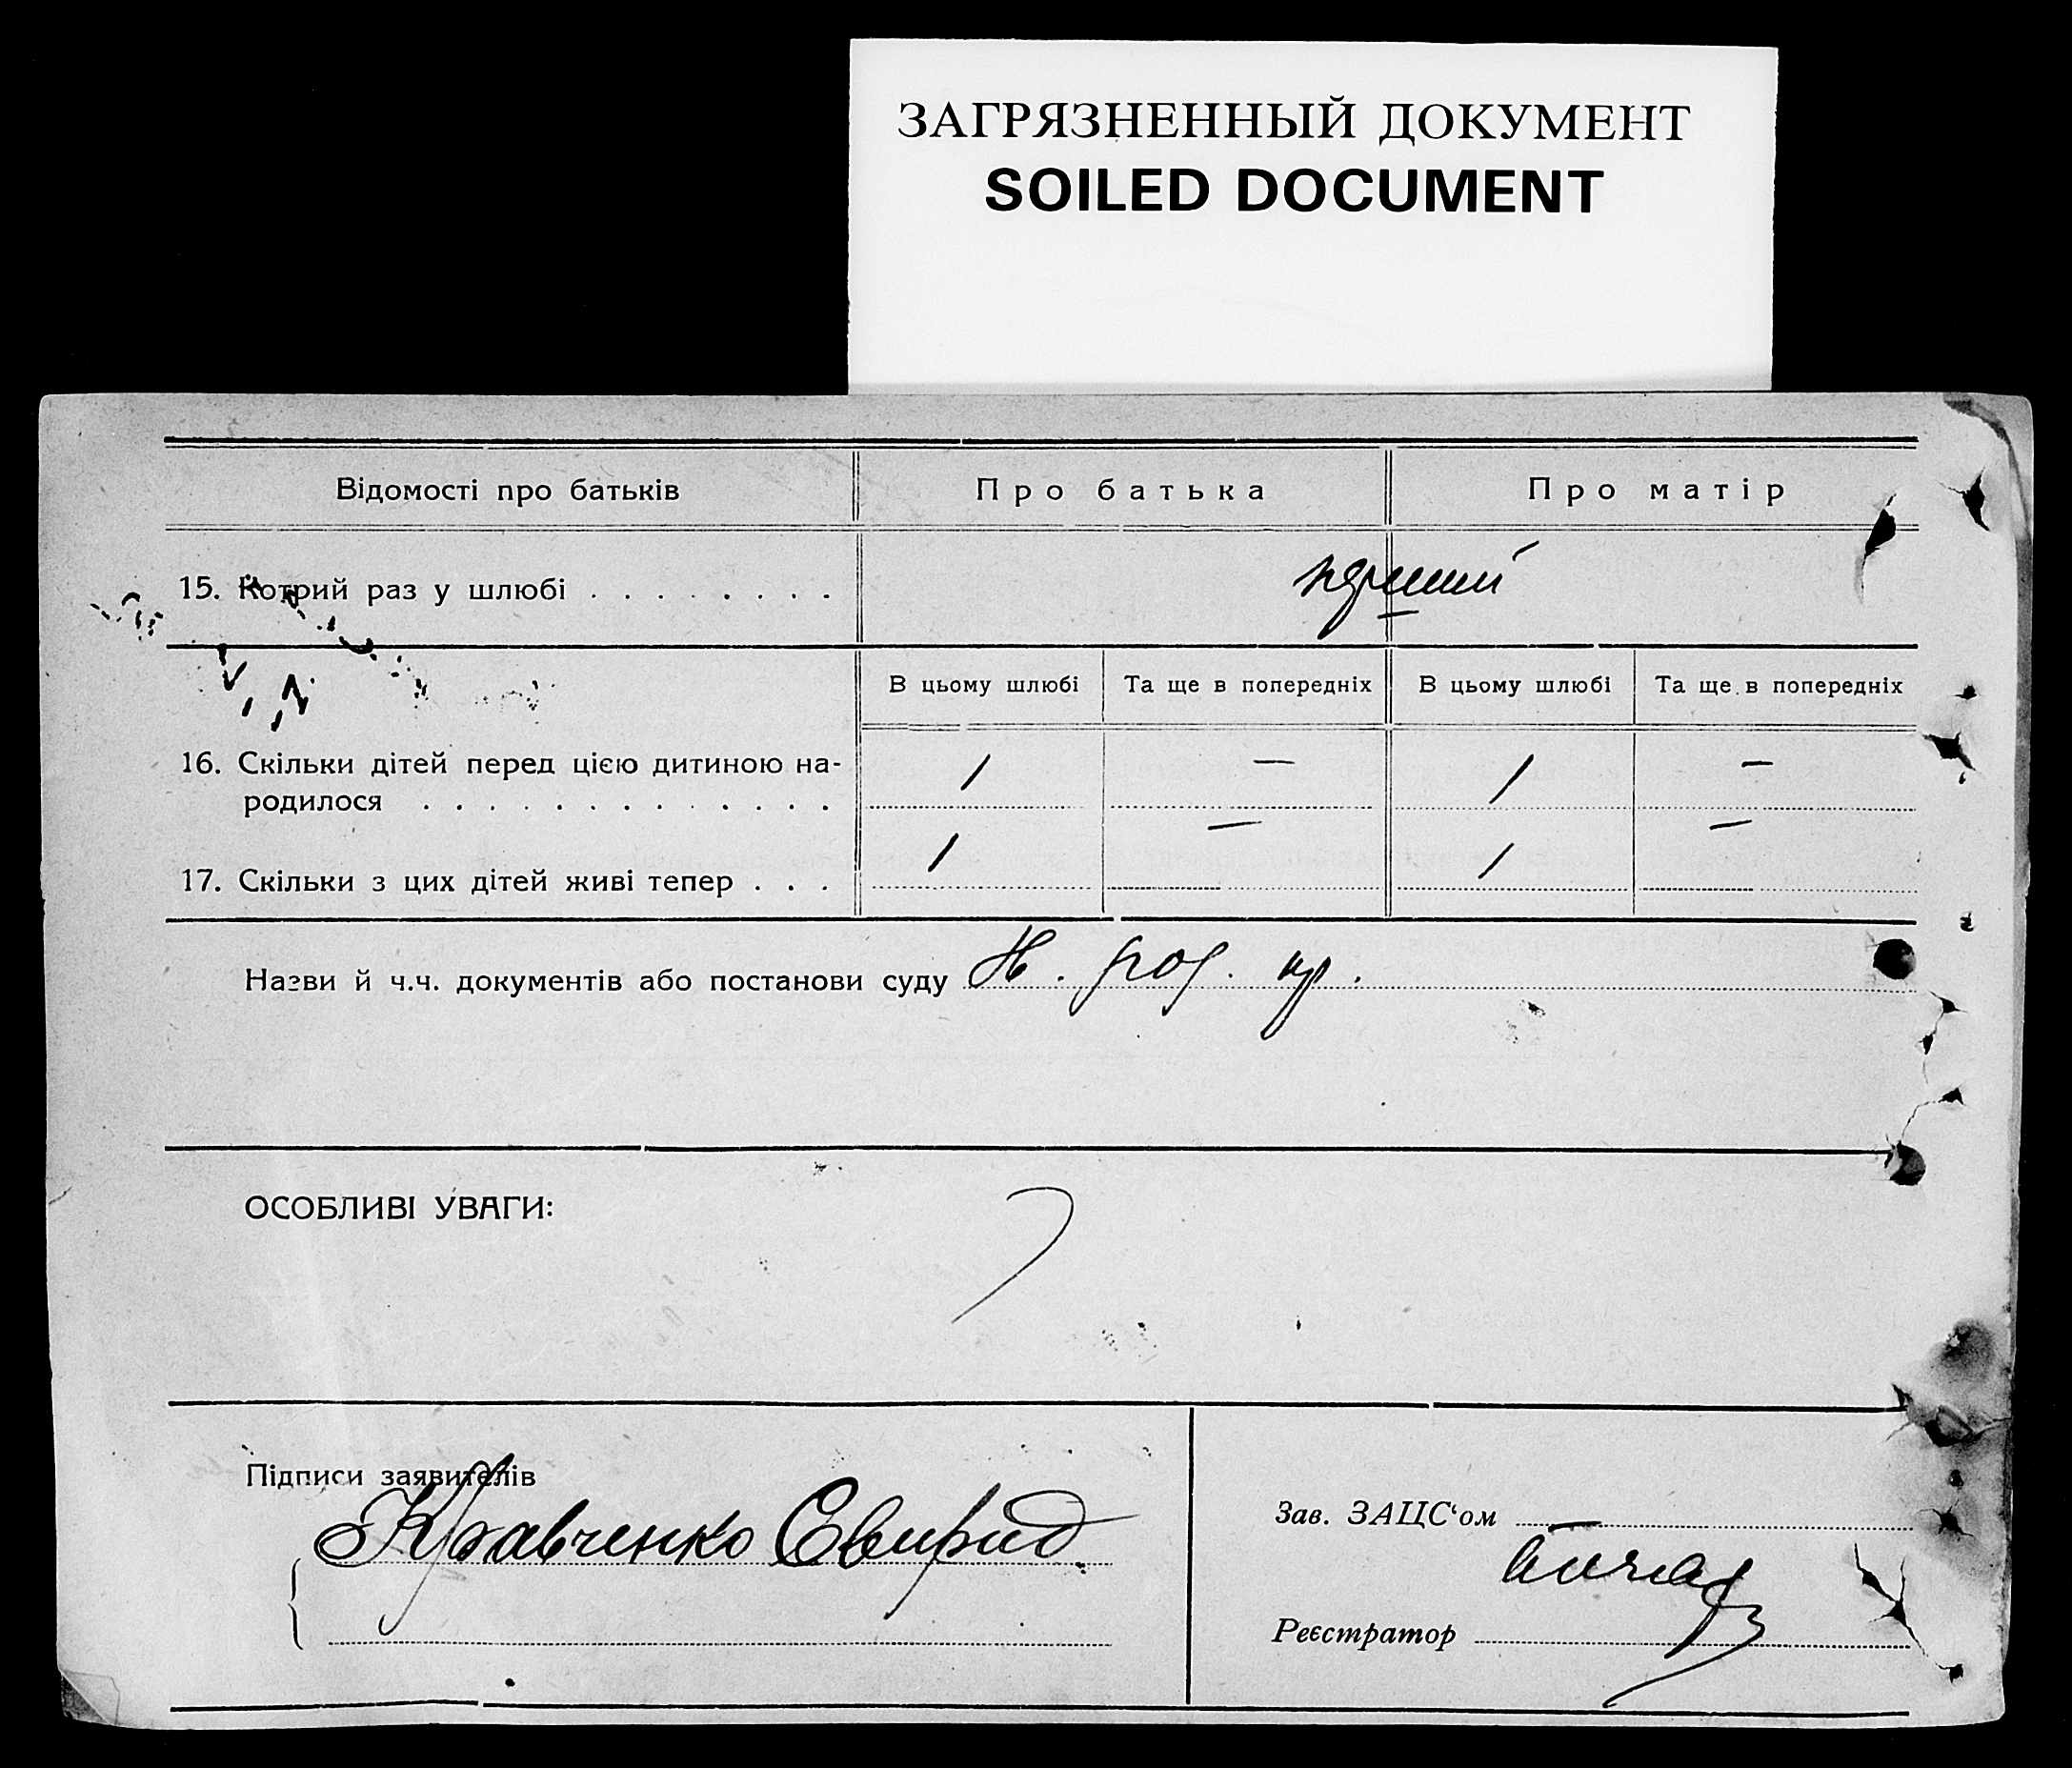 ЗАГРЯЗНЕННЫЙ ДОКУМЕНТ
SOILED DOCUMENT
Відомості про батьків Про батька Про матір
15. Котрий раз у шлюбі . . . . . . . . перший
В цьому шлюбі Та ще в попередніх В цьому шлюбі Та ще в попередніх
16. Скільки дітей перед цією дитиною на-
родилося . . . . . . . . . . . . . 1 — 1 —
17. Скільки з цих дітей живі тепер . . . 1 — 1 —
Назви й ч.ч. документів або постанови суду
ОСОБЛИВІ УВАГИ:
Підписи заявителів
Кравченко Свирид
Зав. ЗАЦС'ом
Реєстратор